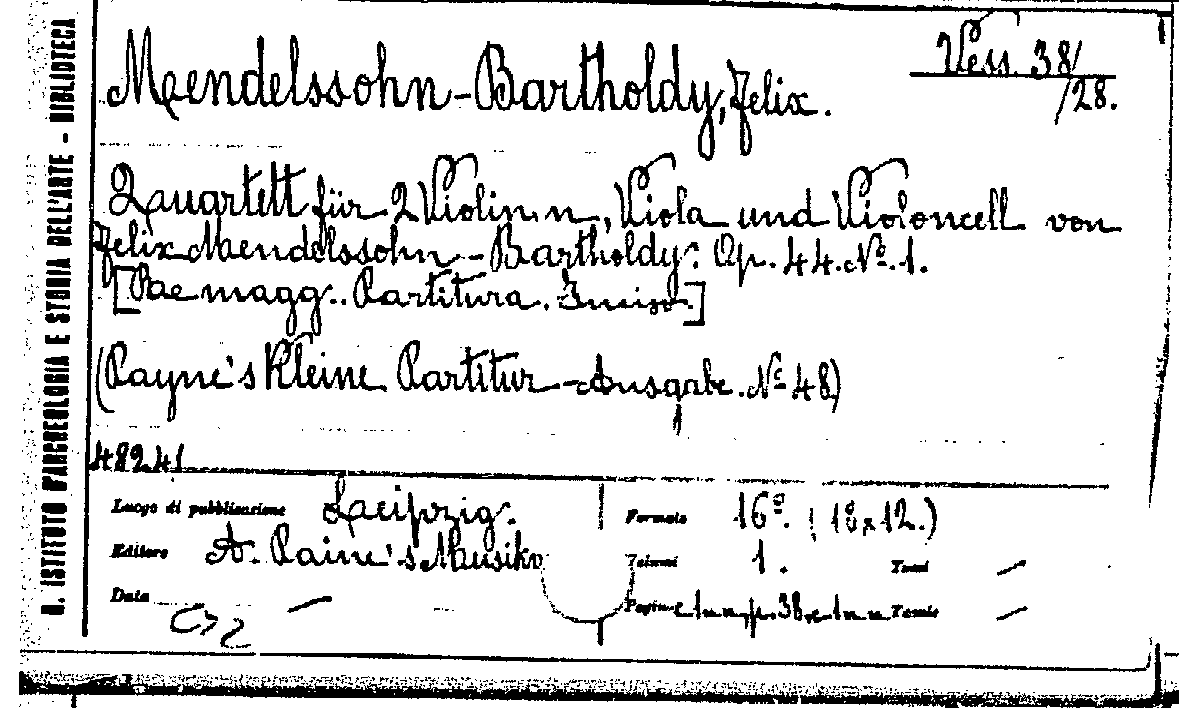 R. ISTITUTO D'ARCHEOLOGIA E STORIA DELL'ARTE - BIBLIOTECA
Vess. 38/
/28.
Mendelssohn-Bartholdy, Felix.
Quartett für 2 Violinen, Viola und Violoncell von
Felix Mendelssohn-Bartholdy. Op. 44. Nº 1.
[Re magg. Partitura. Inciso]
(Payne's Kleine Partitur-Ausgabe. Nº 48)
48241
Luogo di pubblicazione Leipzig. Formato 16º. (18x12.)
Editore A. Paine's Musikv Volumi 1. Tomi –
Data – Pagine p. 38 Tavole –